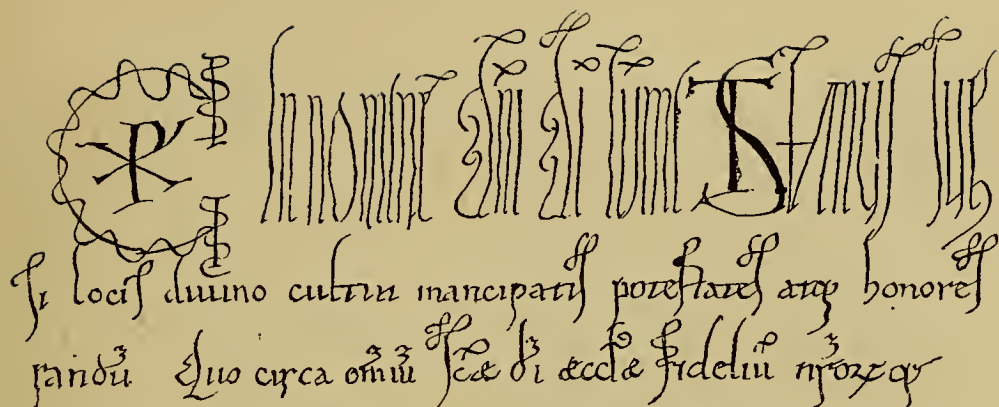 In nomine dni di sumi
Si locis diuino cultui mancipatis potestates atq; honores
randū Quo circa omīū scæ di æcclæ fideliū nrorumq;